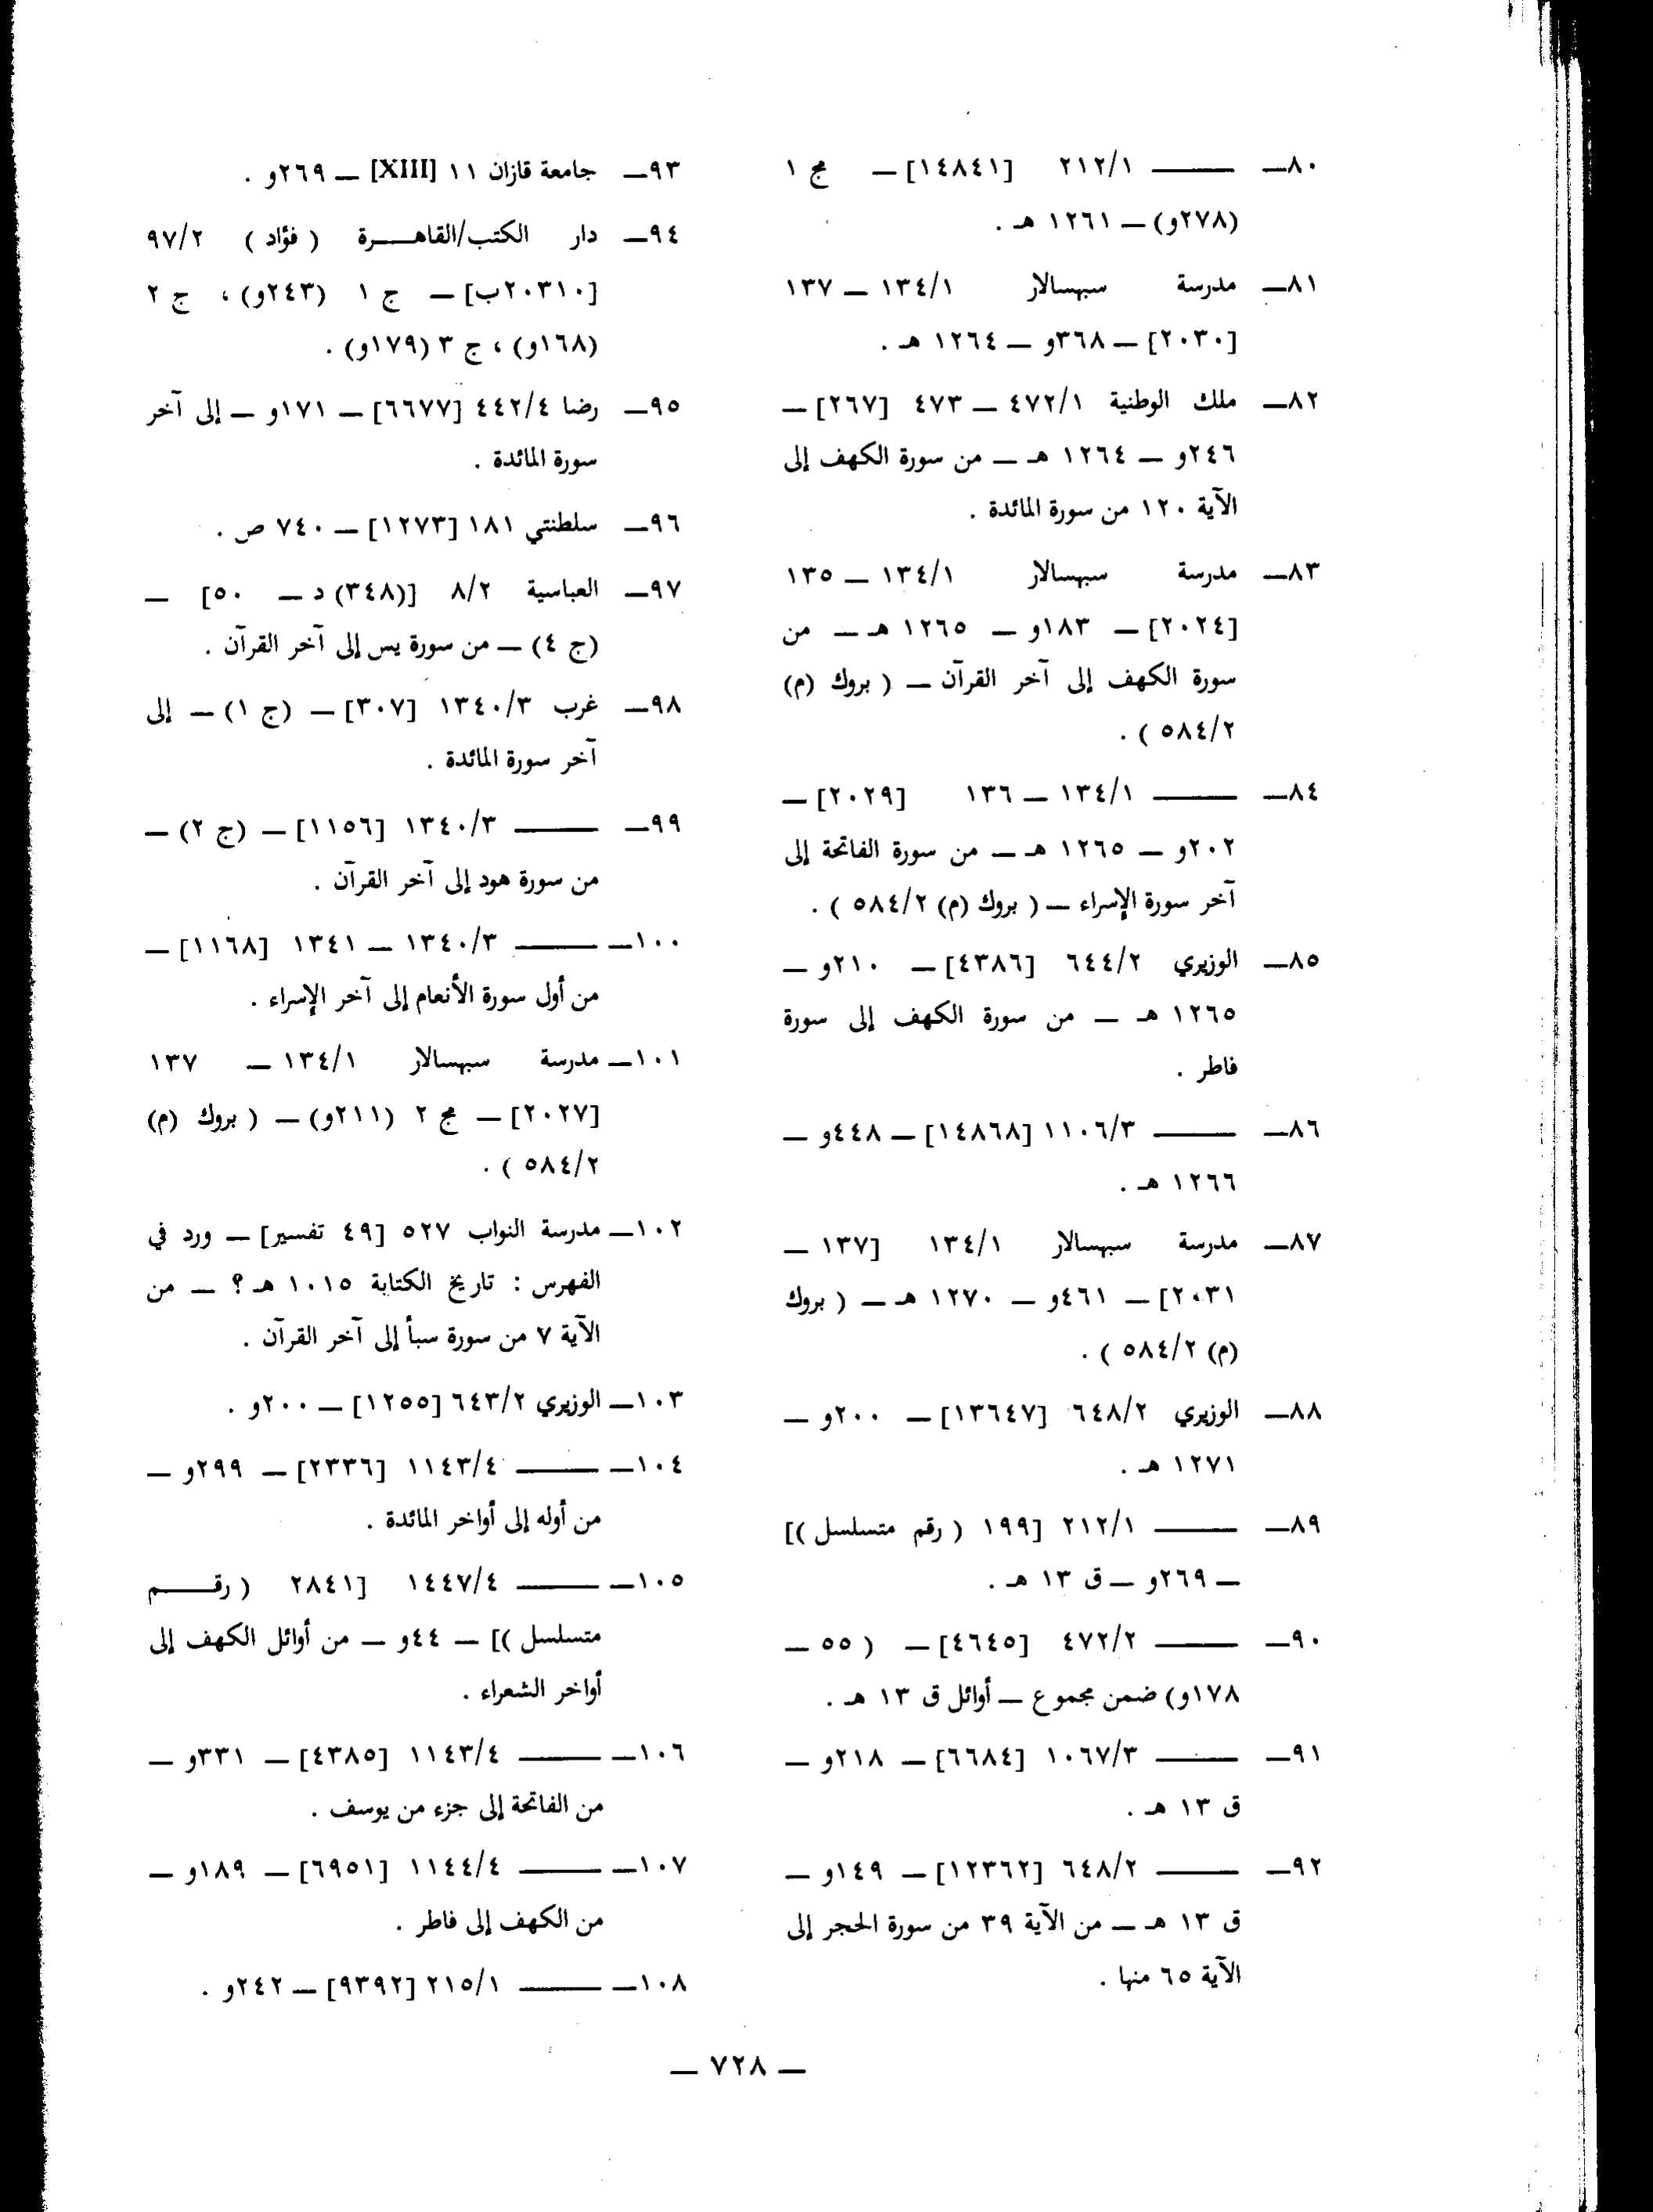 ٨٠— ——— ٢١٢/١ [١٤٨٤١] — مج ١
(٢٧٨و) — ١٢٦١ هـ .
٨١— مدرسة سبهسالار ١٣٤/١ — ١٣٧
[٢٠٣٠] — ٣٦٨و — ١٢٦٤ هـ .
٨٢— ملك الوطنية ٤٧٢/١ — ٤٧٣ [٢٦٧] —
٢٤٦و — ١٢٦٤ هـ — من سورة الكهف إلى
الآية ١٢٠ من سورة المائدة .
٨٣— مدرسة سبهسالار ١٣٤/١ — ١٣٥
[٢٠٢٤] — ١٨٣و — ١٢٦٥ هـ — من
سورة الكهف إلى آخر القرآن — ( بروك (م)
٥٨٤/٢ ) .
٨٤— ——— ١٣٤/١ — ١٣٦ [٢٠٢٩] —
٢٠٢و — ١٢٦٥ هـ — من سورة الفاتحة إلى
آخر سورة الإسراء — ( بروك (م) ٥٨٤/٢ ) .
٨٥— الوزيري ٦٤٤/٢ [٤٣٨٦] — ٢١٠و —
١٢٦٥ هـ — من سورة الكهف إلى سورة
فاطر .
٨٦— ——— ١١٠٦/٣ [١٤٨٦٨] — ٤٤٨و —
١٢٦٦ هـ .
٨٧— مدرسة سبهسالار ١٣٤/١ [١٣٧ —
٢٠٣١] — ٤٦١و — ١٢٧٠ هـ — ( بروك
(م) ٥٨٤/٢ ) .
٨٨— الوزيري ٦٤٨/٢ [١٣٦٤٧] — ٢٠٠و —
١٢٧١ هـ .
٨٩— ——— ٢١٢/١ [١٩٩ ( رقم متسلسل )]
— ٢٦٩و — ق ١٣ هـ .
٩٠— ——— ٤٧٢/٢ [٤٦٤٥] — ( ٥٥ —
١٧٨و) ضمن مجموع — أوائل ق ١٣ هـ .
٩١— ——— ١٠٦٧/٣ [٦٦٨٤] — ٢١٨و —
ق ١٣ هـ .
٩٢— ——— ٦٤٨/٢ [١٢٣٦٢] — ١٤٩و —
ق ١٣ هـ — من الآية ٣٩ من سورة الحجر إلى
الآية ٦٥ منها .
٩٣— جامعة قازان ١١ [XIII] — ٢٦٩و .
٩٤— دار الكتب/القاهـــرة ( فؤاد ) ٩٧/٢
[٢٠٣١٠ب] — ج ١ (٢٤٣و) ، ج ٢
(١٦٨و) ، ج ٣ (١٧٩و) .
٩٥— رضا ٤٤٢/٤ [٦٦٧٧] — ١٧١و — إلى آخر
سورة المائدة .
٩٦— سلطنتي ١٨١ [١٢٧٣] — ٧٤٠ ص .
٩٧— العباسية ٨/٢ [(٣٤٨) د — ٥٠] —
(ج ٤) — من سورة يس إلى آخر القرآن .
٩٨— غرب ١٣٤٠/٣ [٣٠٧] — (ج ١) — إلى
آخر سورة المائدة .
٩٩— ——— ١٣٤٠/٣ [١١٥٦] — (ج ٢) —
من سورة هود إلى آخر القرآن .
١٠٠— ——— ١٣٤٠/٣ — ١٣٤١ [١١٦٨] —
من أول سورة الأنعام إلى آخر الإسراء .
١٠١— مدرسة سبهسالار ١٣٤/١ — ١٣٧
[٢٠٢٧] — مج ٢ (٢١١و) — ( بروك (م)
٥٨٤/٢ ) .
١٠٢— مدرسة النواب ٥٢٧ [٤٩ تفسير] — ورد في
الفهرس : تاريخ الكتابة ١٠١٥ هـ ؟ — من
الآية ٧ من سورة سبأ إلى آخر القرآن .
١٠٣— الوزيري ٦٤٣/٢ [١٢٥٥] — ٢٠٠و .
١٠٤— ——— ١١٤٣/٤ [٢٣٣٦] — ٢٩٩و —
من أوله إلى أواخر المائدة .
١٠٥— ——— ١٤٤٧/٤ [٢٨٤١ ( رقـــم
متسلسل )] — ٤٤و — من أوائل الكهف إلى
أواخر الشعراء .
١٠٦— ——— ١١٤٣/٤ [٤٣٨٥] — ٣٣١و —
من الفاتحة إلى جزء من يوسف .
١٠٧— ——— ١١٤٤/٤ [٦٩٥١] — ١٨٩و —
من الكهف إلى فاطر .
١٠٨— ——— ٢١٥/١ [٩٣٩٢] — ٢٤٢و .
— ٧٢٨ —